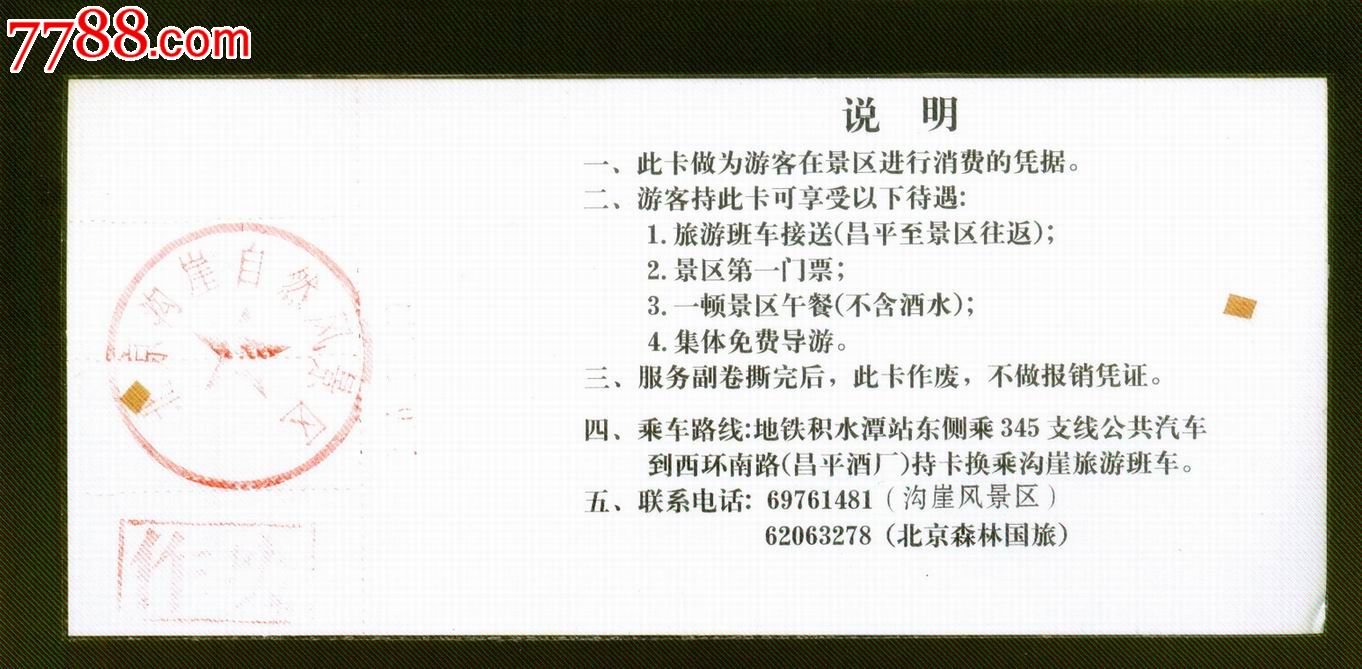 7788.com
说 明
一、此卡做为游客在景区进行消费的凭据。
二、游客持此卡可享受以下待遇:
1.旅游班车接送(昌平至景区往返);
2.景区第一门票;
3.一顿景区午餐(不含酒水);
4.集体免费导游。
三、服务副卷撕完后，此卡作废，不做报销凭证。
四、乘车路线:地铁积水潭站东侧乘345支线公共汽车
到西环南路(昌平酒厂)持卡换乘沟崖旅游班车。
五、联系电话: 69761481 (沟崖风景区)
62063278 (北京森林国旅)
北京沟崖自然风景区